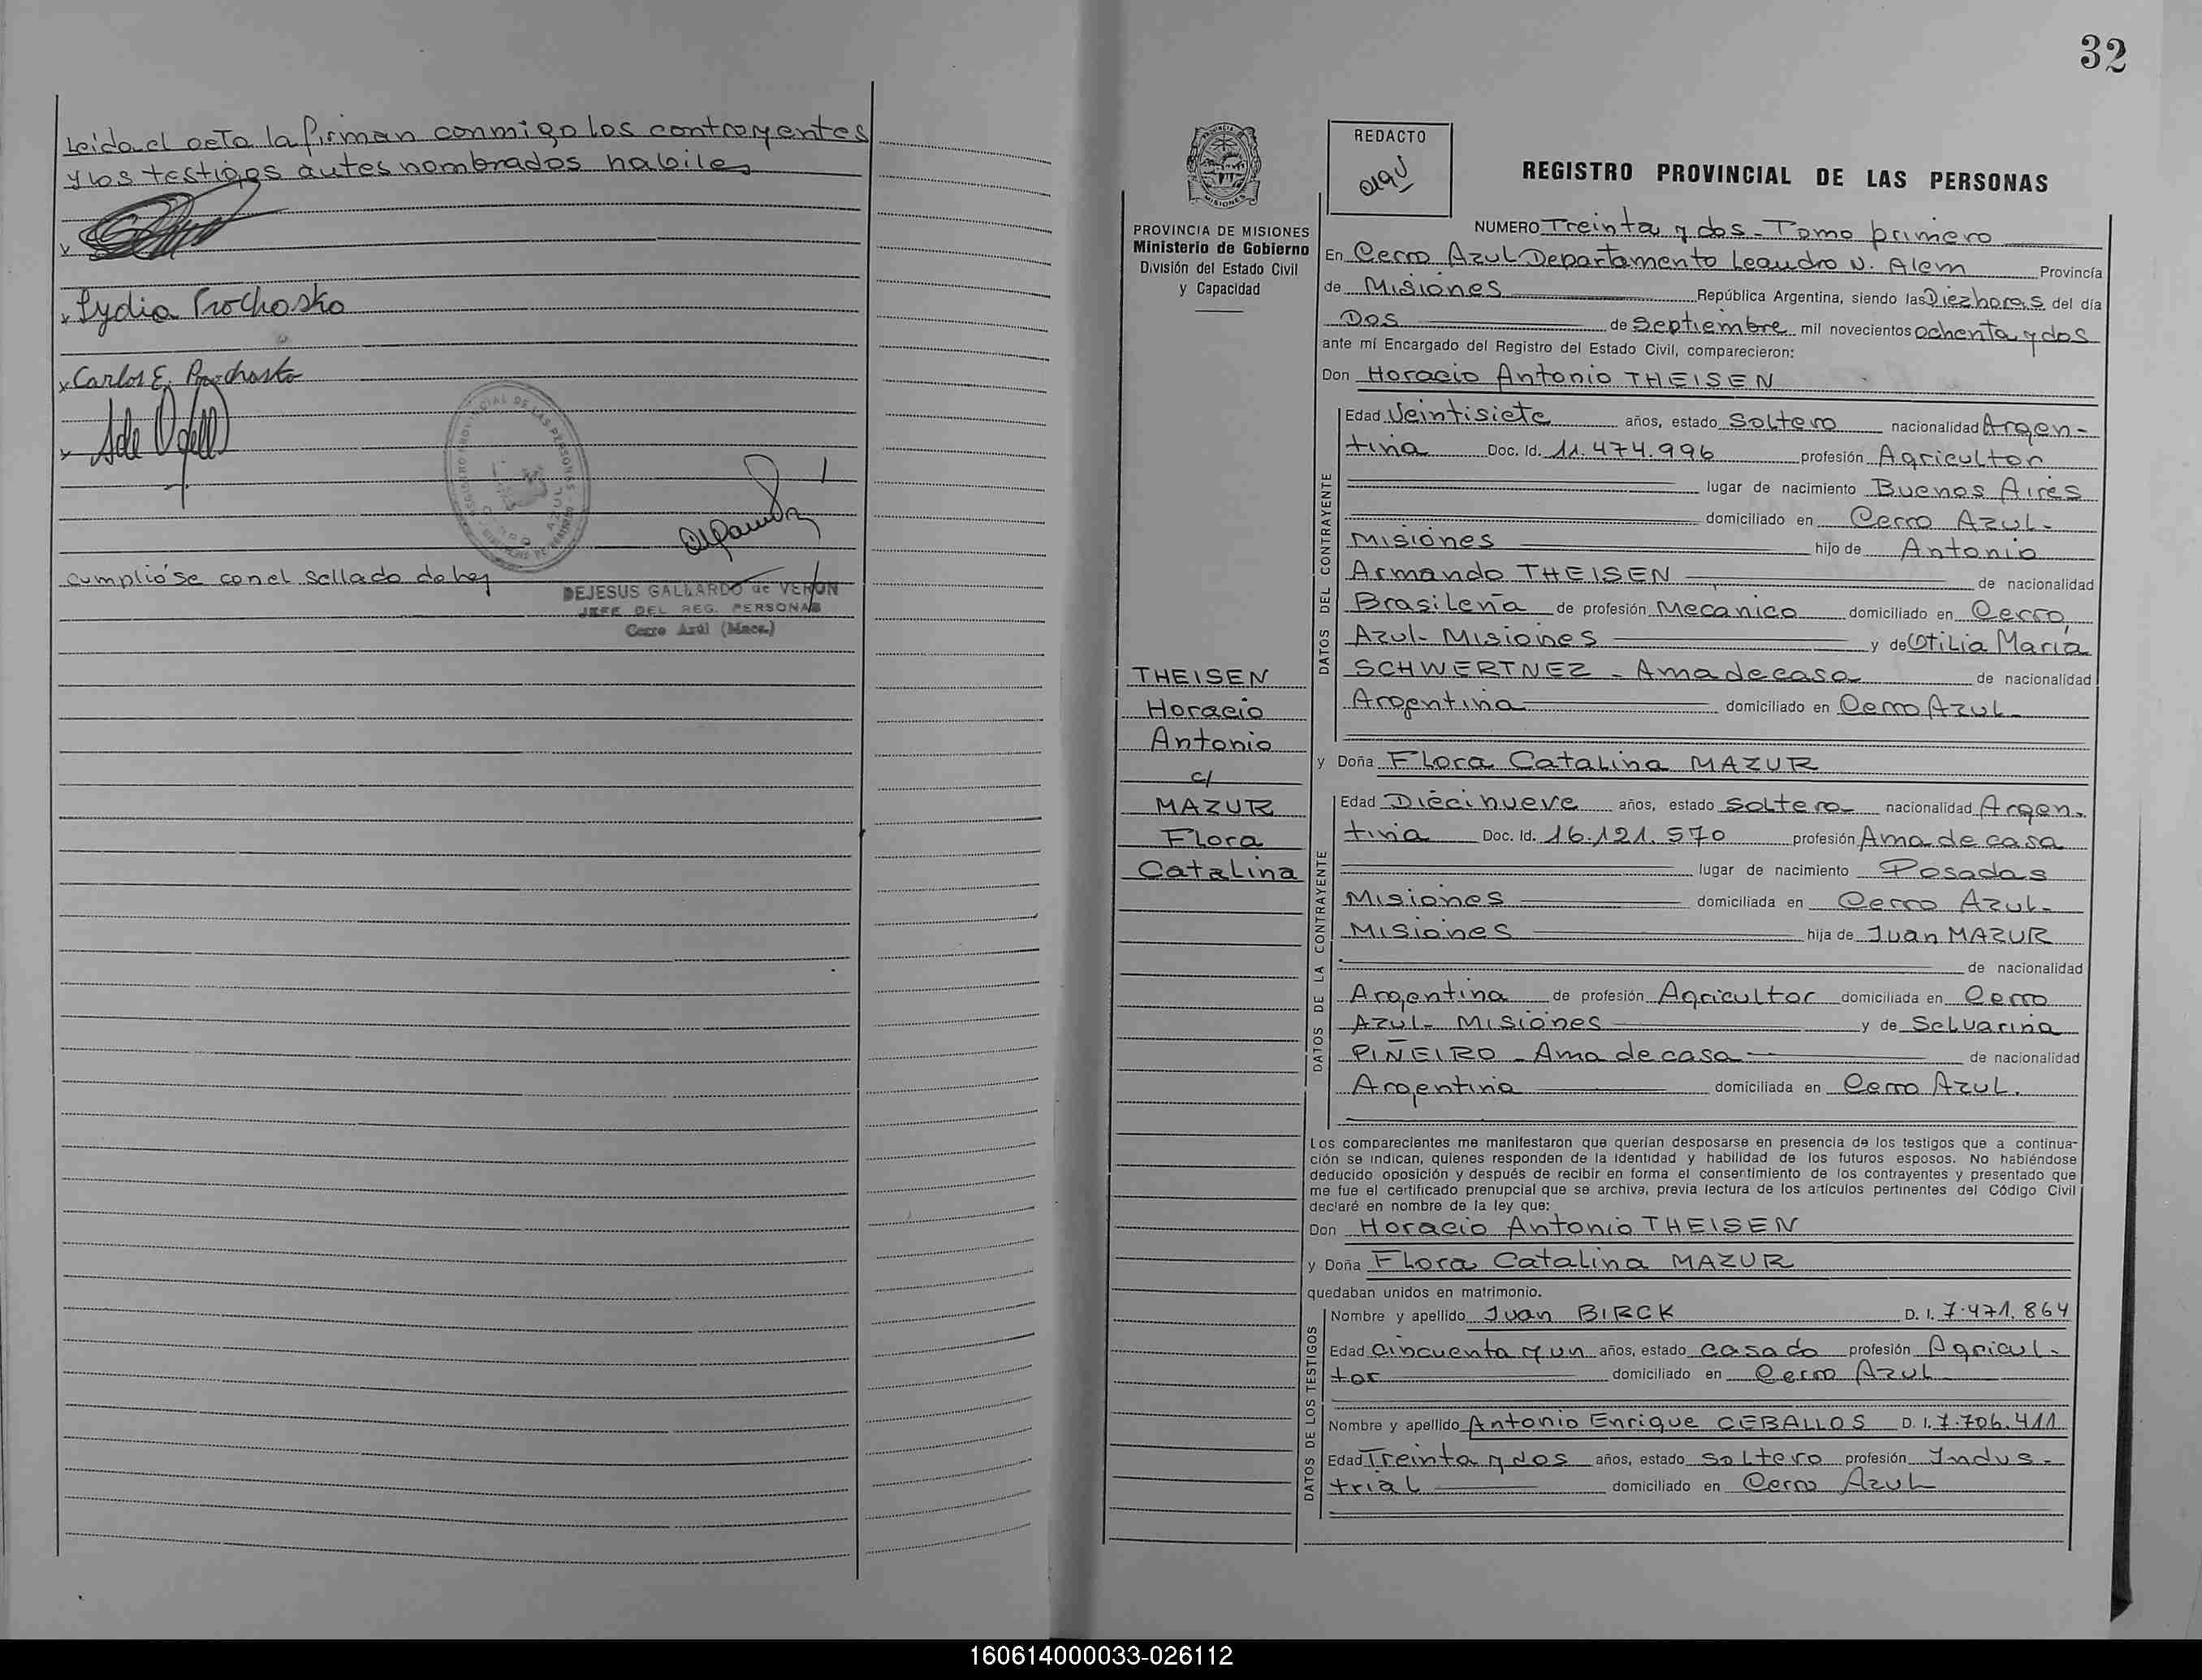 Leida el acta la firman conmigo los contrayentes
y los testigos antes nombrados habiles
x
x Lydia Prochosko
x Carlos E. Prochosko
x
REGISTRO PROVINCIAL DE LAS PERSONAS
CERRO AZUL
cumplióse con el sellado de ley
DEJESUS GALLARDO de VERON
JEFE DEL REG. PERSONAS
Cerro Azúl (Mnes.)
32
REDACTO
aquí
REGISTRO PROVINCIAL DE LAS PERSONAS
PROVINCIA DE MISIONES
Ministerio de Gobierno
División del Estado Civil
y Capacidad
NUMERO Treinta y dos - Tomo primero
En Cerro Azul Departamento Leandro N. Alem Provincia
de Misiones República Argentina, siendo las Diez horas del día
Dos de Septiembre mil novecientos ochenta y dos
ante mí Encargado del Registro del Estado Civil, comparecieron:
Don Horacio Antonio THEISEN
DATOS DEL CONTRAYENTE
Edad Veintisiete años, estado Soltero nacionalidad Argen-
tina Doc. Id. 11.474.996 profesión Agricultor
lugar de nacimiento Buenos Aires
domiciliado en Cerro Azul-
Misiones hijo de Antonio
Armando THEISEN de nacionalidad
Brasileña de profesión Mecanico domiciliado en Cerro
Azul- Misiones y de Otilia María
SCHWERTNEZ - Ama de casa de nacionalidad
Argentina domiciliado en Cerro Azul-
THEISEN
Horacio
Antonio
c/
MAZUR
Flora
Catalina
y Doña Flora Catalina MAZUR
DATOS DE LA CONTRAYENTE
Edad Diecinueve años, estado Soltera nacionalidad Argen-
tina Doc. Id. 16.121.570 profesión Ama de casa
lugar de nacimiento Posadas
Misiones domiciliada en Cerro Azul-
Misiones hija de Juan MAZUR
de nacionalidad
Argentina de profesión Agricultor domiciliada en Cerro
Azul- Misiones y de Selvarina
PIÑEIRO - Ama de casa de nacionalidad
Argentina domiciliada en Cerro Azul.
Los comparecientes me manifestaron que querían desposarse en presencia de los testigos que a continua-
ción se indican, quienes responden de la identidad y habilidad de los futuros esposos. No habiéndose
deducido oposición y después de recibir en forma el consentimiento de los contrayentes y presentado que
me fue el certificado prenupcial que se archiva, previa lectura de los artículos pertinentes del Código Civil
declaré en nombre de la ley que:
Don Horacio Antonio THEISEN
y Doña Flora Catalina MAZUR
quedaban unidos en matrimonio.
DATOS DE LOS TESTIGOS
Nombre y apellido Juan BIRCK D. I. 7.471.864
Edad Cincuenta y un años, estado casado profesión Agricul-
tor domiciliado en Cerro Azul
Nombre y apellido Antonio Enrique CEBALLOS D. I. 7.706.411
Edad Treinta y dos años, estado Soltero profesión Indus-
trial domiciliado en Cerro Azul
160614000033-026112